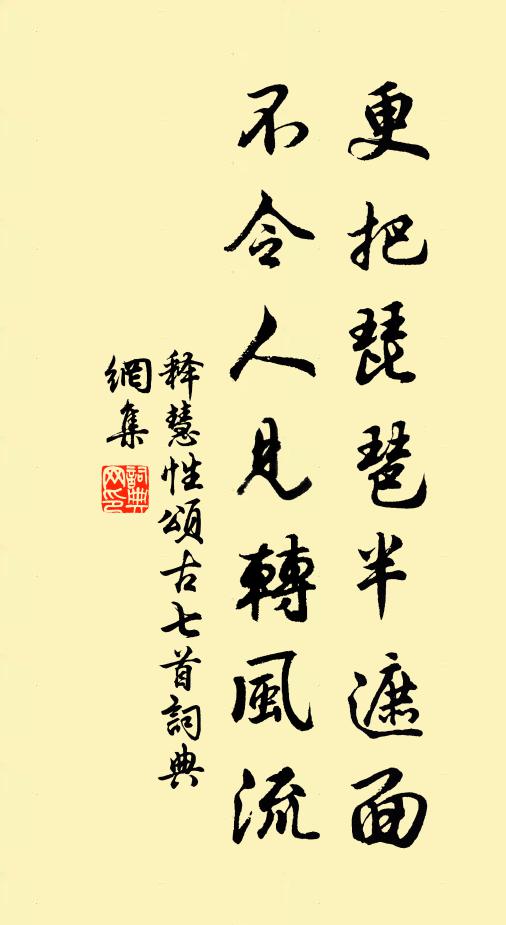 更把琵琶半遮面
不令人見轉風流
释慧性頌古七首詞典
網集
詞典
网印